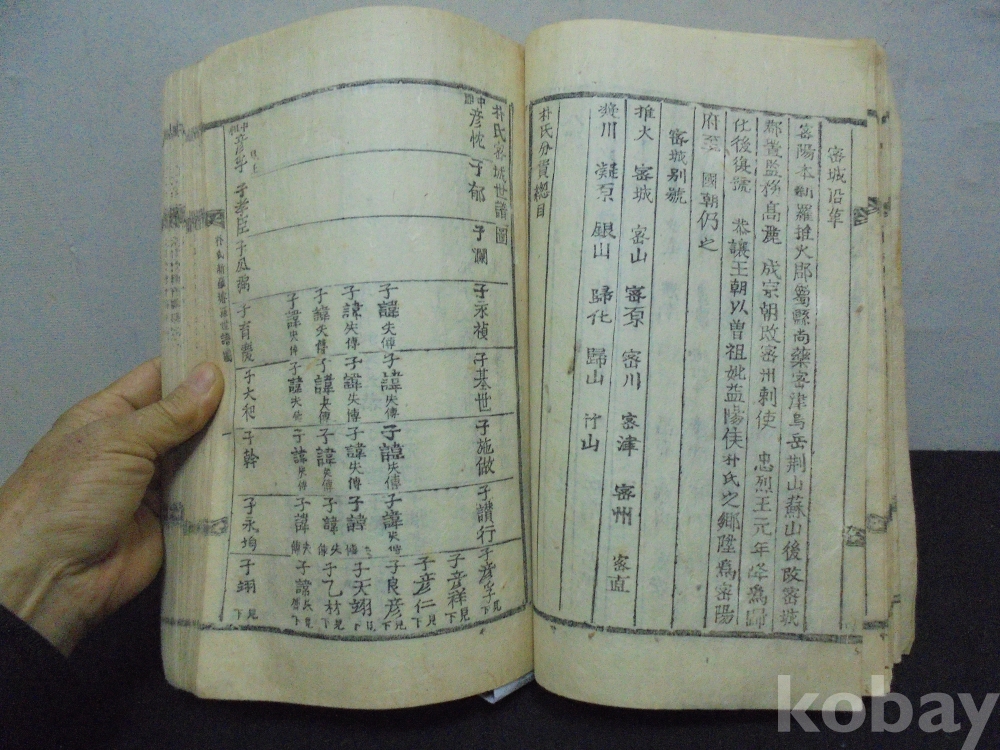 密城沿革
密陽本新羅推火郡屬縣尚藥密津烏岳荆山蘇山後改密城
郡置監務高麗 成宗朝改密州刺使 忠烈王元年降爲歸
化後復號 恭讓王朝以曽祖妣益陽侯朴氏之鄉陞爲密陽
府至 國朝仍之
密城别號
推火 密城 密山 密原 密川 密津 密州 密直
凝川 凝原 銀山 歸化 歸山 汁山
朴氏分貫總目
朴氏密城世譜圖
中郎 彦忱 子郁 子瀾 子永禎 子基世 子施做 子讃行 子彦孚 見下
子彦祥 見下
子彦仁 見下
子諱失傳 子諱失傳 子諱失傳 子諱失傳 子良彦 見下
子諱失傳 子諱失傳 子諱失傳 子諱失傳 子天翊 見下
子諱失傳 子諱失傳 子諱失傳 子諱失傳 子乙材 見下
子諱失傳 子諱失傳 子諱失傳 子諱失傳
彦孚 子孝臣 子育 子大和 子幹 子永均 子翊 見下
kobay